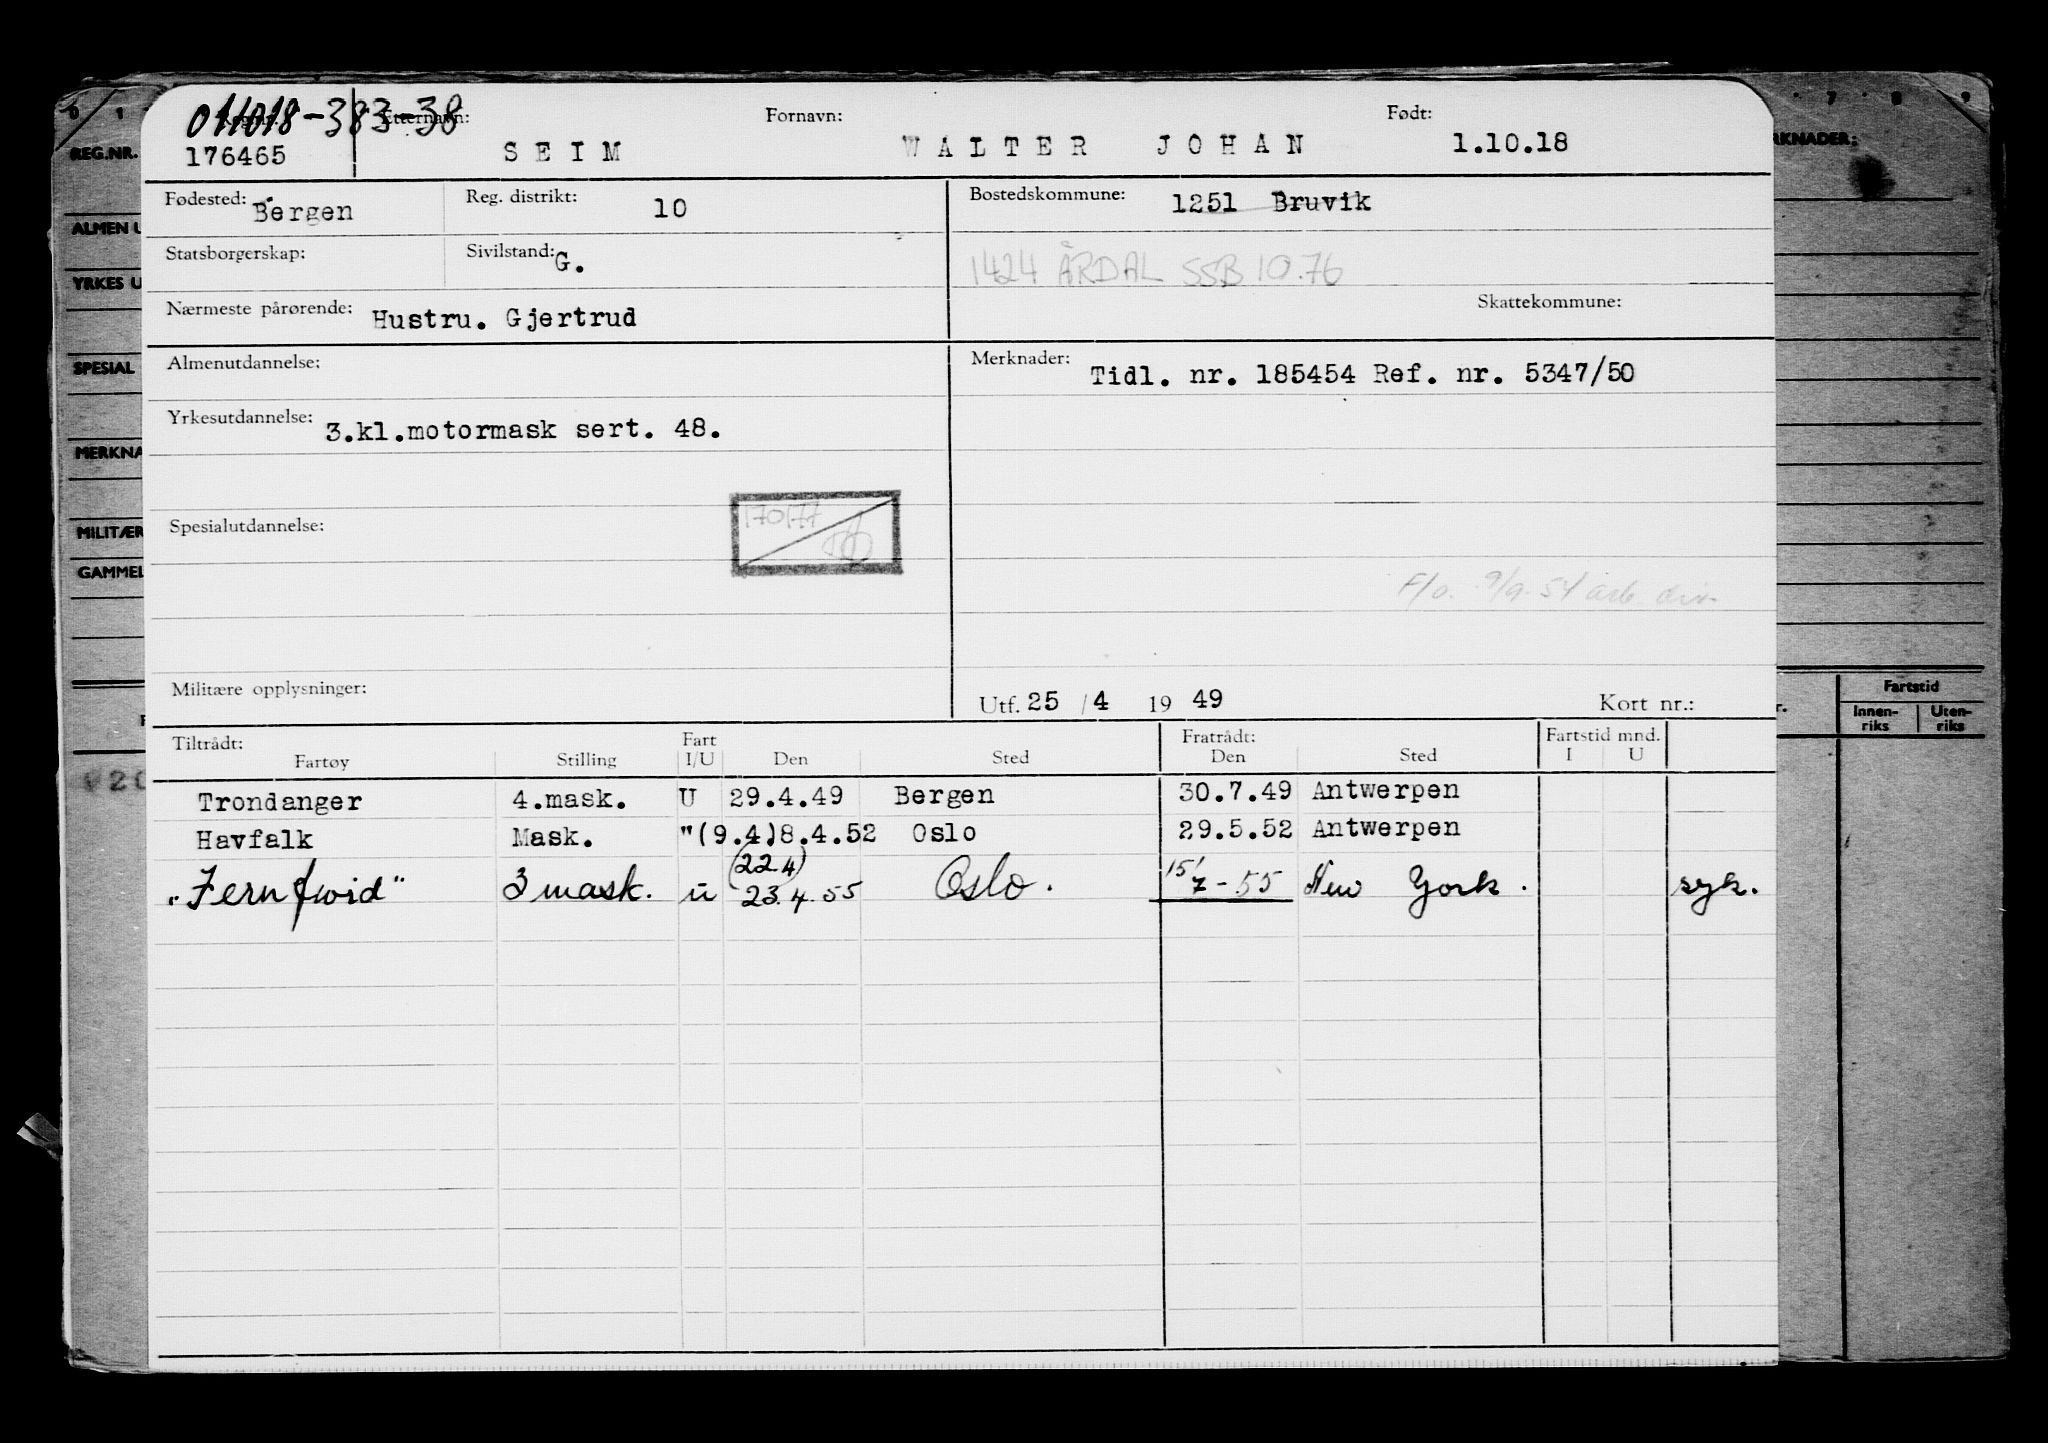 011018-383-38
Reg.nr. Etternavn: Fornavn: Født:
176465 SEIM WALTER JOHAN 1.10.18
Fødested: Bergen Reg. distrikt: 10 Bostedskommune: 1251 Bruvik
Statsborgerskap: Sivilstand: G. 1424 ÅRDAL SSB 10.76
Nærmeste pårørende: Hustru. Gjertrud Skattekommune:
Almenutdannelse: Merknader: Tidl. nr. 185454 Ref. nr. 5347/50
Yrkesutdannelse: 3.kl.motormask sert. 48.
Spesialutdannelse:
F/o. 9/9-54 arb. dir.
Militære opplysninger: Utf. 25 / 4 19 49 Kort nr.:
Tiltrådt: Fart Fratrådt: Fartstid mnd.
Fartøy Stilling I/U Den Sted Den Sted I U
Trondanger 4.mask. U 29.4.49 Bergen 30.7.49 Antwerpen
Havfalk Mask. "(9.4)8.4.52 Oslo 29.5.52 Antwerpen
(22.4)
3 mask. u 23.4.55 Oslo. 15/7-55 New York. syk.
0 1 7 8 9
REG.NR.
ALMEN U
YRKES U
SPESIAL
MERKNA
MILITÆR
GAMMEL
RKNADER:
Fartstid
Innen-riks Uten-riks